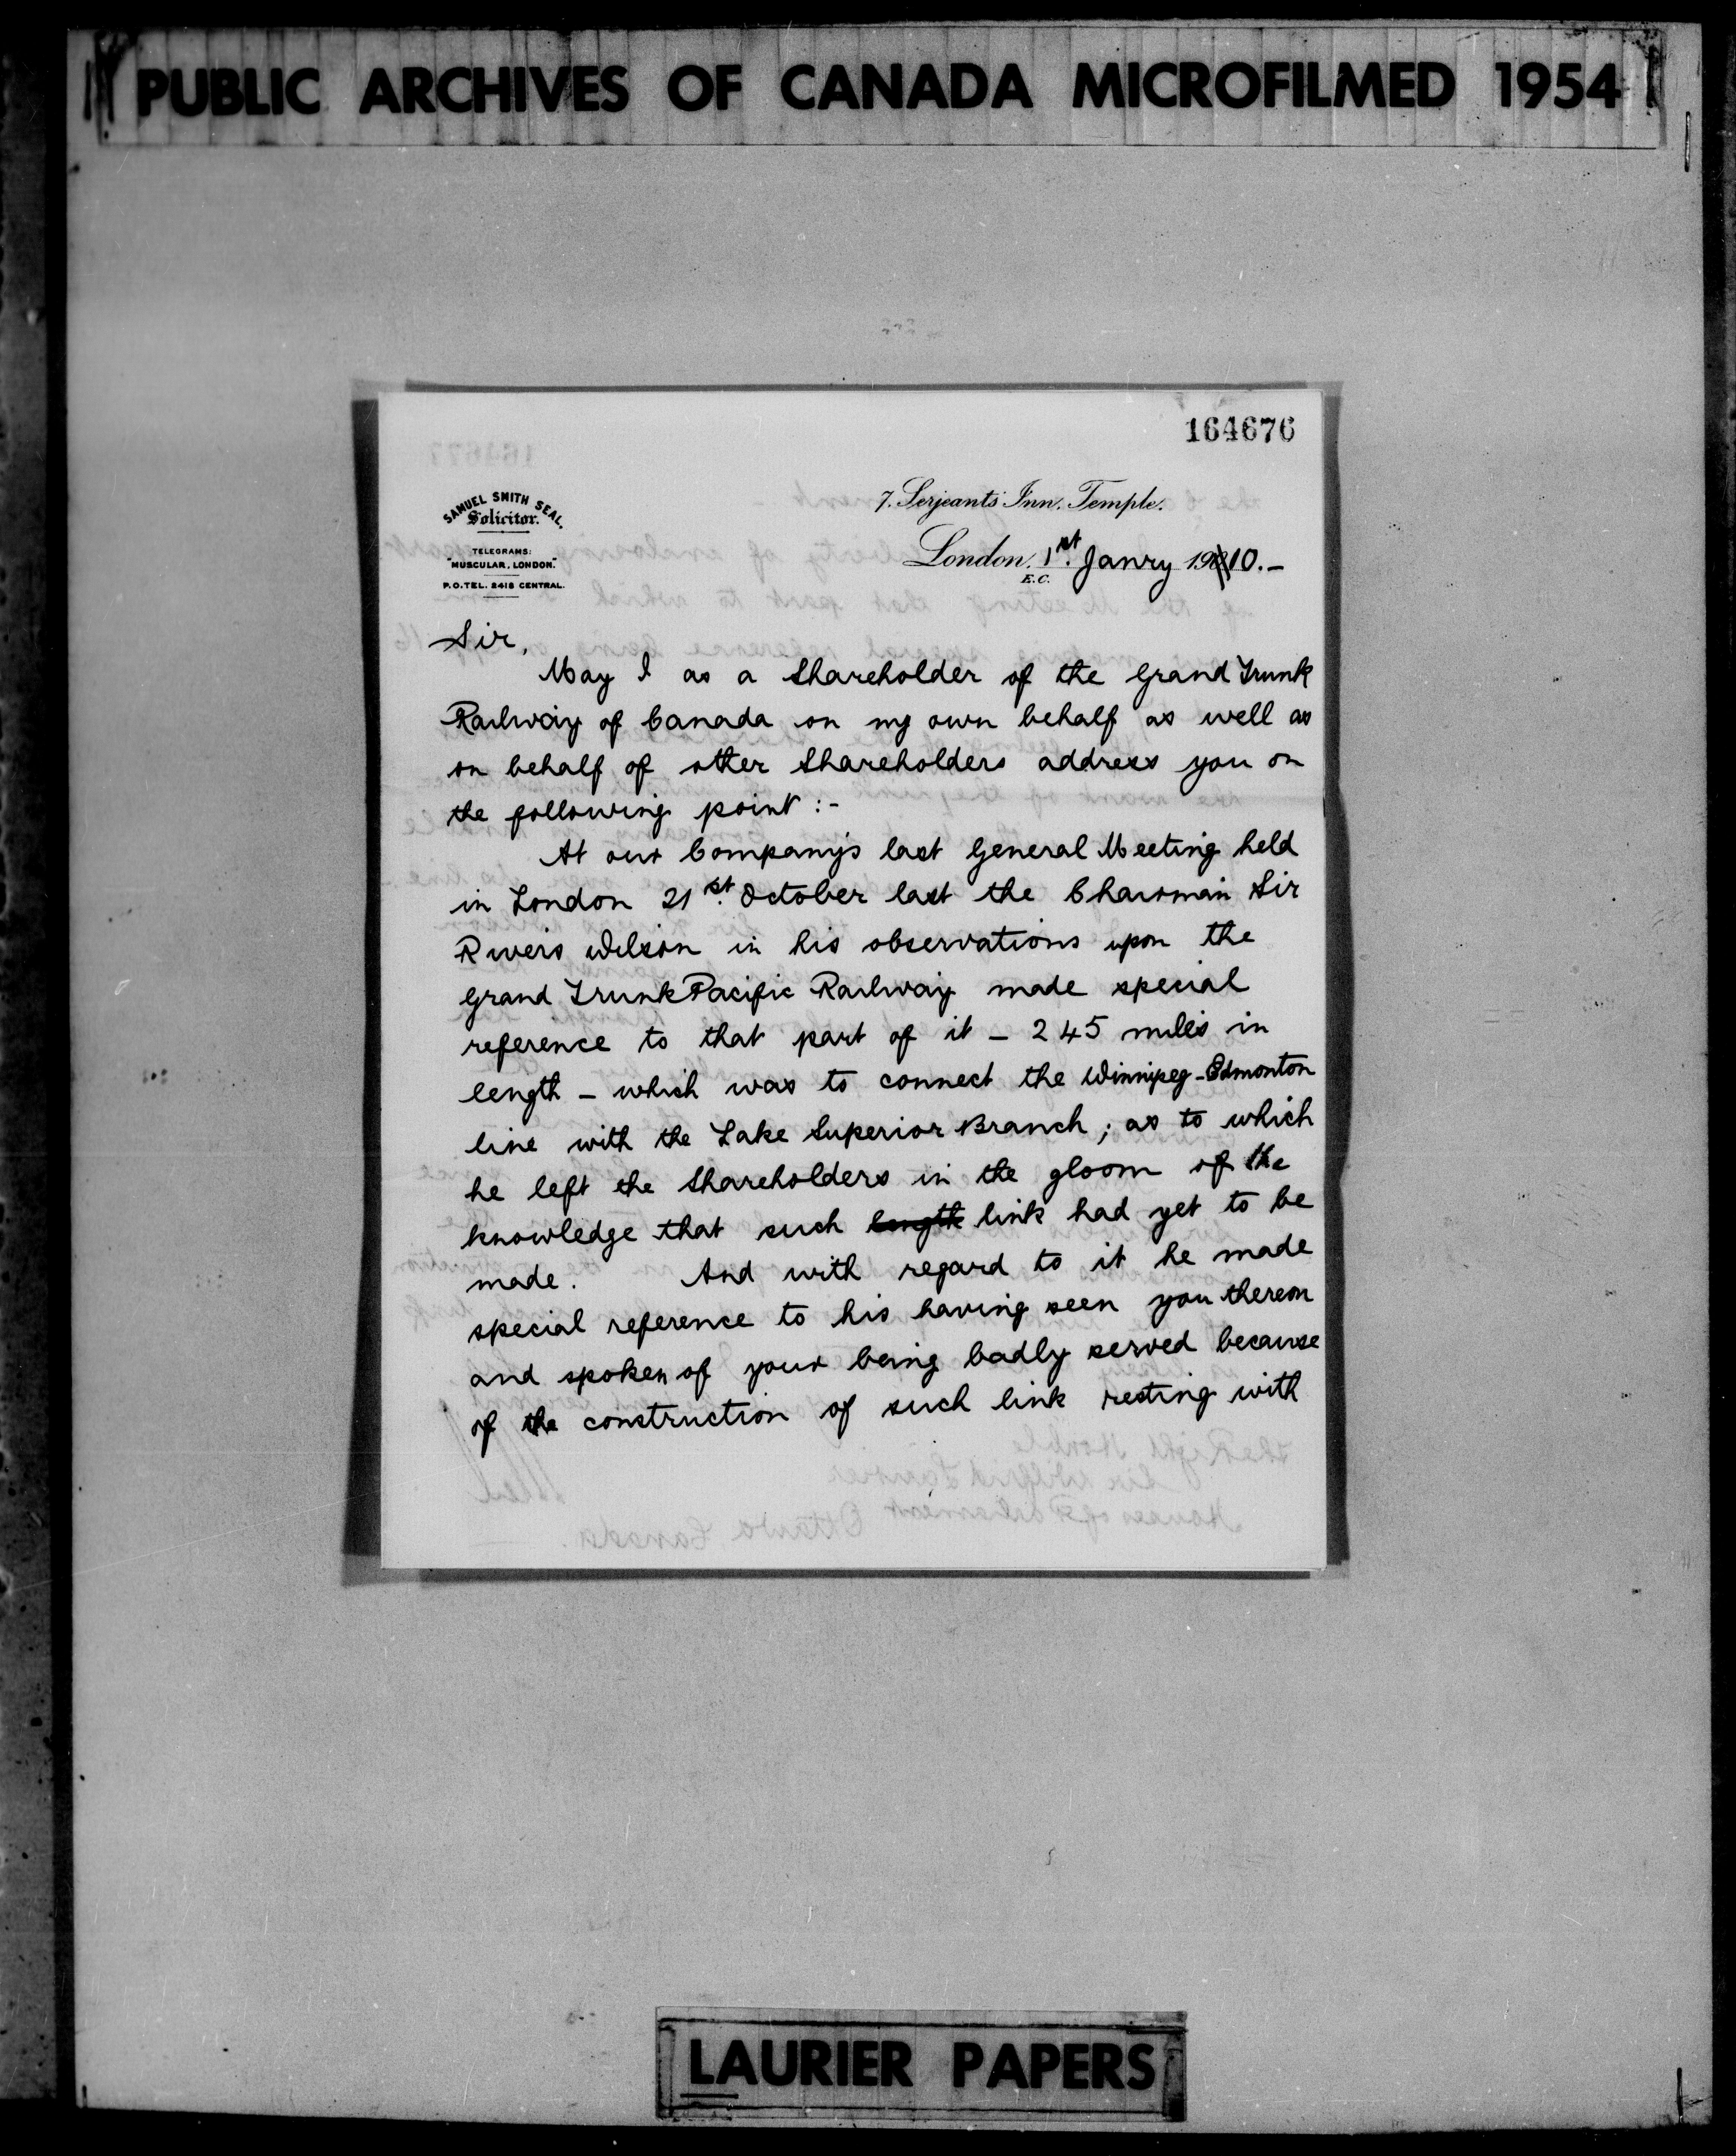 PUBLIC ARCHIVES OF CANADA MICROFILMED 1954
164676
SAMUEL SMITH SEAL,
Solicitor.
TELEGRAMS:
"MUSCULAR, LONDON."
P.O. TEL. 2418 CENTRAL.
7. Serjeants' Inn. Temple.
London. 1st Janry 1910.-
E.C.
Sir,
May I as a Shareholder of the Grand Trunk
Railway of Canada on my own behalf as well as
on behalf of other Shareholders address you on
the following point :-
At our Company's last General Meeting held
in London 21st October last the Chairman Sir
Rivers Wilson in his observations upon the
Grand Trunk Pacific Railway made special
reference to that part of it - 245 miles in
length - which was to connect the Winnipeg-Edmonton
line with the Lake Superior Branch ; as to which
he left the Shareholders in the gloom of the
knowledge that such length link had yet to be
made. And with regard to it he made
special reference to his having seen you thereon
and spoken of your being badly served because
of the construction of such link resting with
LAURIER PAPERS